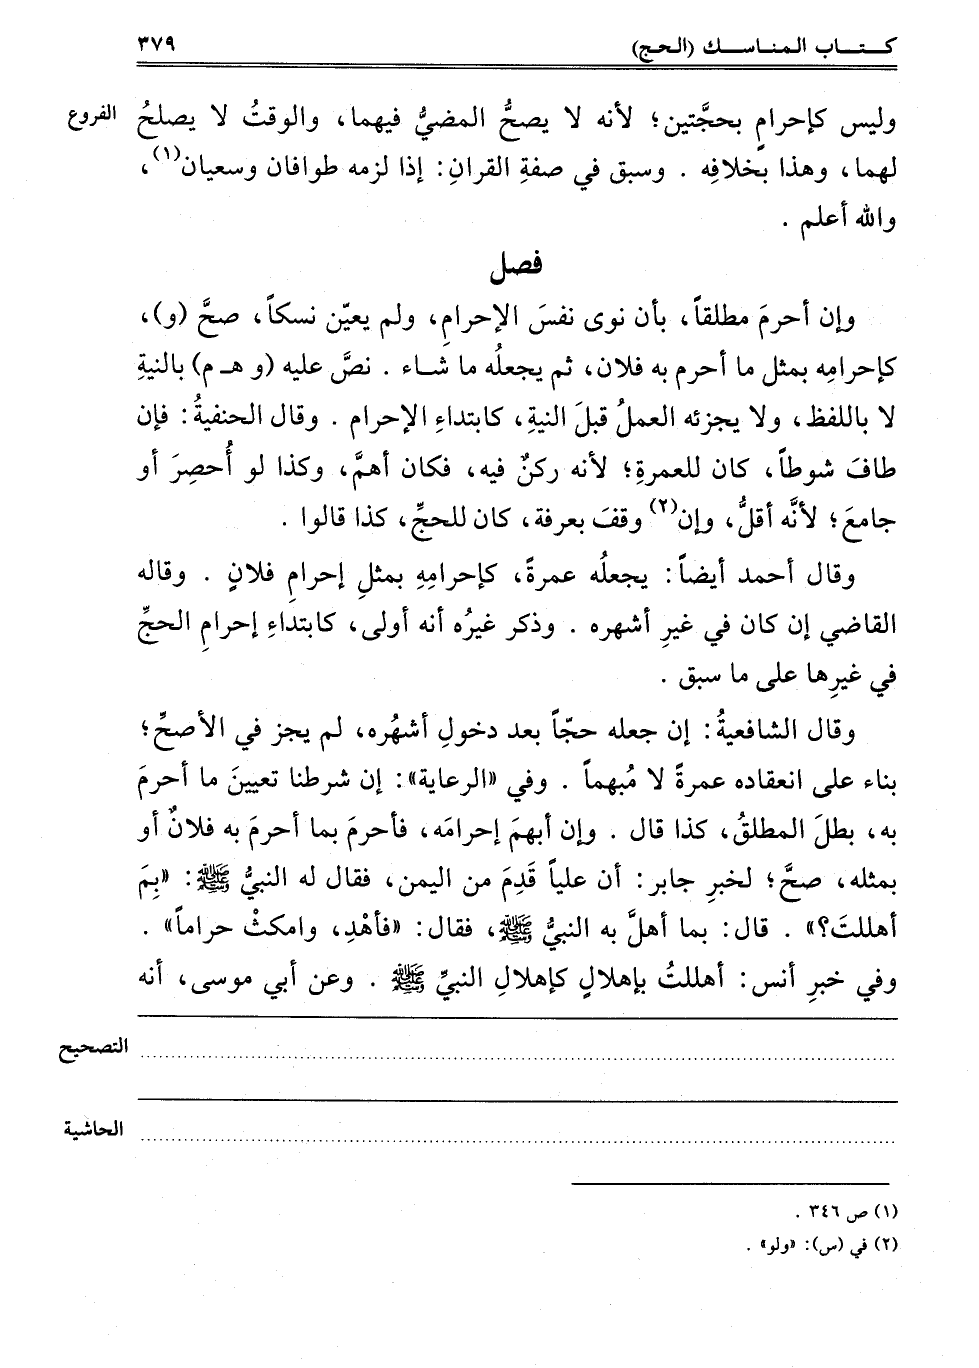 كتاب المناسك (الحج) ٣٧٩
وليس كإحرامٍ بحجَّتين؛ لأنه لا يصحُّ المضيُّ فيهما، والوقتُ لا يصلحُ الفروع
لهما، وهذا بخلافِه . وسبق في صفةِ القرانِ: إذا لزمه طوافان وسعيان(١)،
والله أعلم .
فصل
وإن أحرمَ مطلقاً، بأن نوى نفسَ الإحرامِ، ولم يعيّن نسكاً، صحَّ (و)،
كإحرامِه بمثل ما أحرم به فلان، ثم يجعلُه ما شاء . نصَّ عليه (و هـ م) بالنيةِ
لا باللفظ، ولا يجزئه العملُ قبلَ النيةِ، كابتداءِ الإحرام . وقال الحنفيةُ: فإن
طافَ شوطاً، كان للعمرةِ؛ لأنه ركنٌ فيه، فكان أهمَّ، وكذا لو أُحصِرَ أو
جامعَ؛ لأنَّه أقلُّ، وإن(٢) وقفَ بعرفة، كان للحجِّ، كذا قالوا .
وقال أحمد أيضاً: يجعلُه عمرةً، كإحرامِهِ بمثلِ إحرامِ فلانٍ . وقاله
القاضي إن كان في غيرِ أشهره . وذكر غيرُه أنه أولى، كابتداءِ إحرامِ الحجِّ
في غيرِها على ما سبق .
وقال الشافعيةُ: إن جعله حجّاً بعد دخولِ أشهُره، لم يجز في الأصحِّ؛
بناء على انعقاده عمرةً لا مُبهماً . وفي «الرعاية»: إن شرطنا تعيينَ ما أحرمَ
به، بطلَ المطلقُ، كذا قال . وإن أبهمَ إحرامَه، فأحرمَ بما أحرمَ به فلانٌ أو
بمثله، صحَّ؛ لخبرِ جابر: أن علياً قَدِمَ من اليمن، فقال له النبيُّ ﷺ: «بِمَ
أهللتَ؟» . قال: بما أهلَّ به النبيُّ ﷺ، فقال: «فأهْدِ، وامكثْ حراماً» .
وفي خبرِ أنس: أهللتُ بإهلالٍ كإهلالِ النبيِّ ﷺ . وعن أبي موسى، أنه
التصحيح
الحاشية
(١) ص ٣٤٦ .
(٢) في (س): «ولو» .